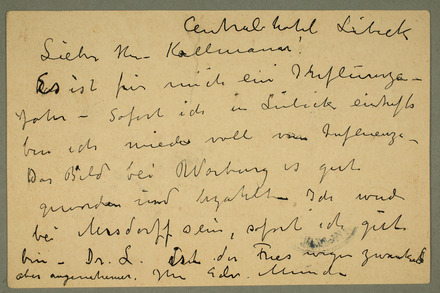 Centralhotel Lübeck
Lieber Herr Kollmann!
Es ist für mich ein Influenza-
Jahr – Sofort ich in Lübeck
bin ich wieder voll von Influenza –
Das Bild bei Warburg ist gut
geworden und bezahlt – Ich
bei sein, sofort ich gut
bin – Dr. L. der Fries wegen
aber angenehmer. Ihr Edv. Munch